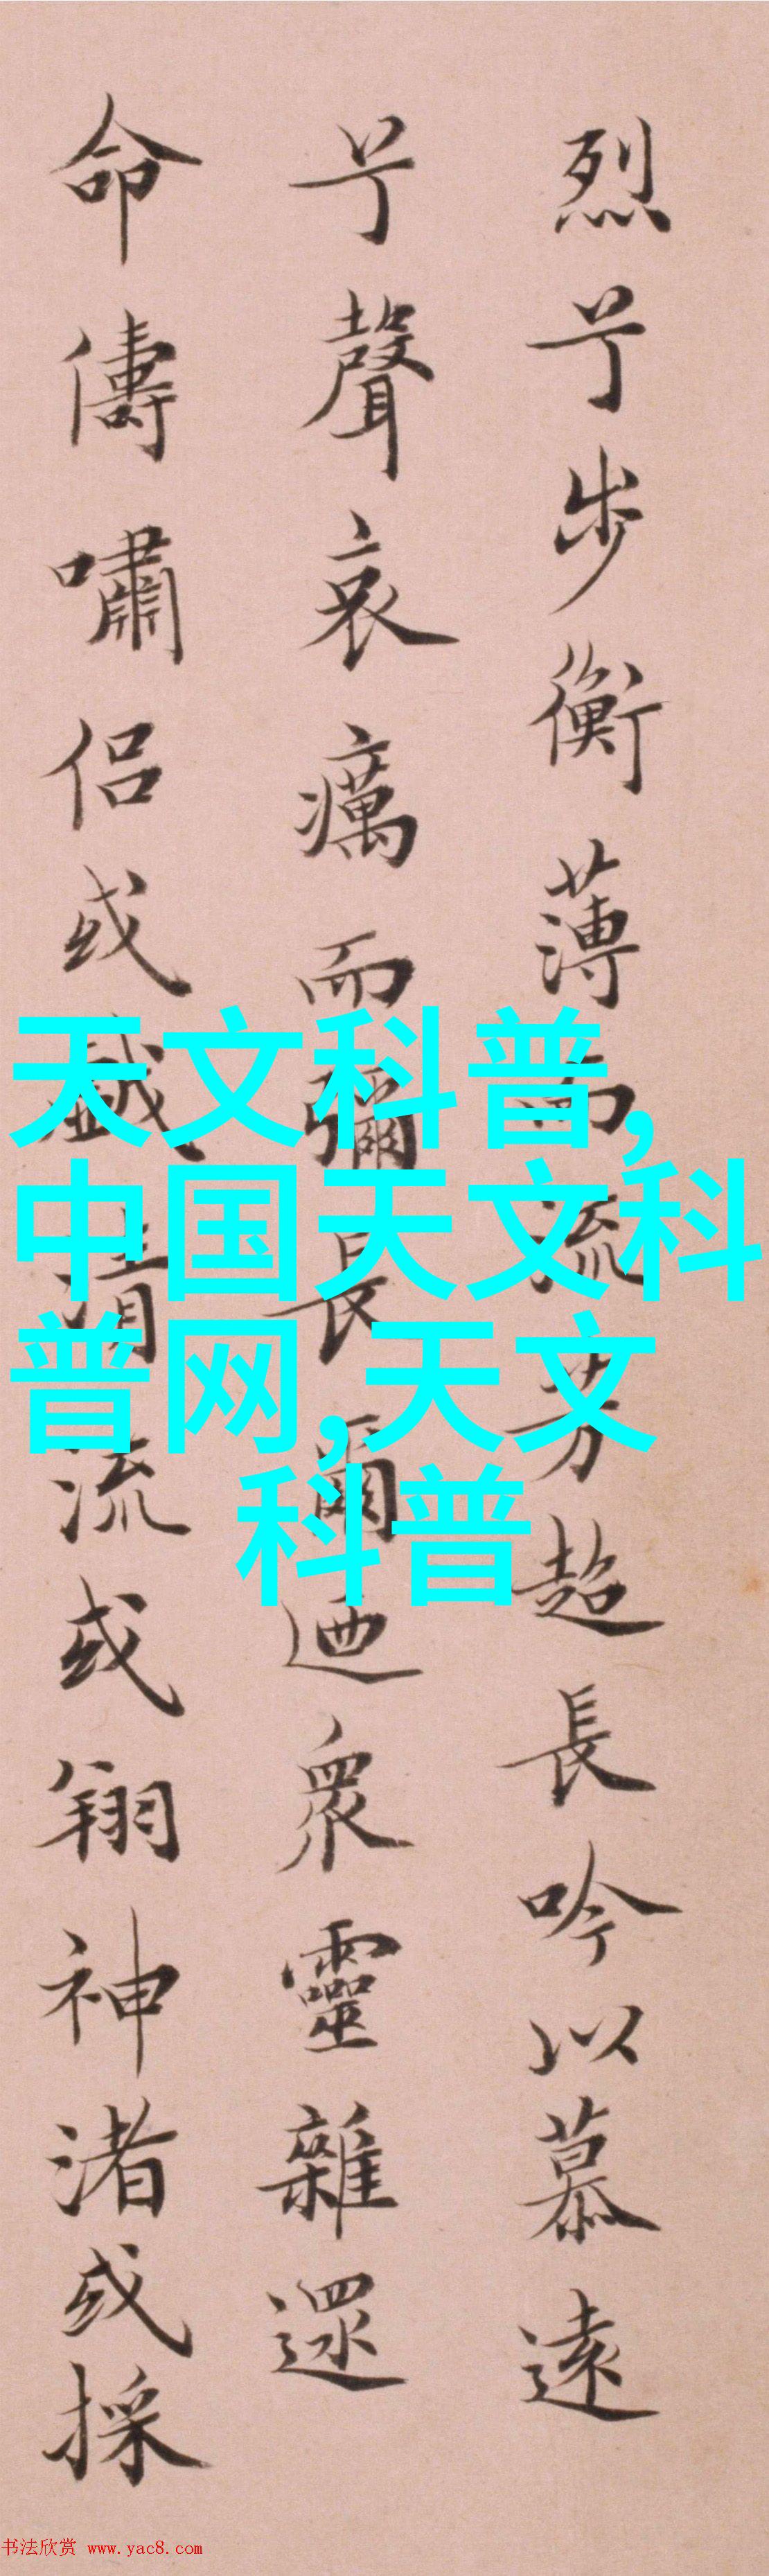 烈兮步衡薄而流芳超長吟以慕遠
兮聲哀癘而彌長爾迺衆靈雜遝
命儔嘯侶或戲清流或翔神渚或採
天文科普,
中国天文科
普网,天文
科普
书法欣赏 www.yac8.com